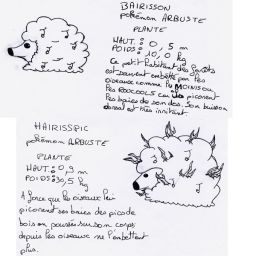 BAIRISSON
pokémon ARBUSTE
PLANTE
HAUT.: 0,5 m
POIDS: 10,0 kg
Ce petit habitant des forêts
est souvent embêté par les
oiseaux comme les MOINISOU
les ROUCOOLS car ils picorent
les baies de son dos. Son buisson
dorsal est très irritant.
HAIRISSPIC
pokémon ARBUSTE
PLANTE
HAUT.: 0,9 m
POIDS: 30,5 kg
A force que les oiseaux lui
picorent ses baies des pics de
bois on poussés sur son corps
depuis les oiseaux ne l'embêttent
plus.